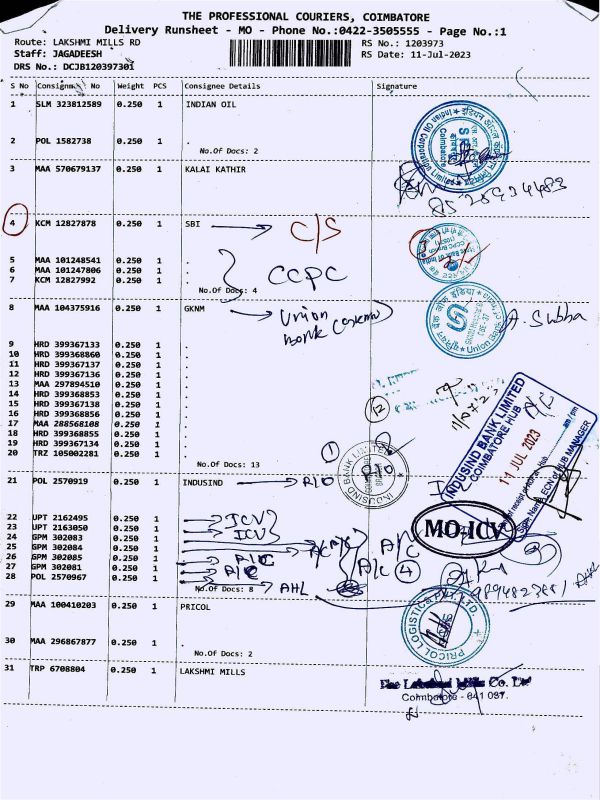 THE PROFESSIONAL COURIERS, COIMBATORE
Delivery Runsheet - MO - Phone No.:0422-3505555 - Page No.:1
Route: LAKSHMI MILLS RD RS No.: 1203973
Staff: JAGADEESH RS Date: 11-Jul-2023
DRS No.: DCJB120397301
S No Consignment No Weight PCS Consignee Details Signature
1 SLM 323812589 0.250 1 INDIAN OIL
2 POL 1582738 0.250 1 .
No.Of Docs: 2
3 MAA 570679137 0.250 1 KALAI KATHIR
4 KCM 12827878 0.250 1 SBI C/S
5 MAA 101248541 0.250 1 .
6 MAA 101247806 0.250 1 . CCPC
7 KCM 12827992 0.250 1 .
No.Of Docs: 4
8 MAA 104375916 0.250 1 GKNM Union
bank
A. Subba
9 HRD 399367133 0.250 1 .
10 HRD 399368860 0.250 1 .
11 HRD 399367137 0.250 1 .
12 HRD 399367136 0.250 1 .
13 MAA 297894510 0.250 1 .
14 HRD 399368853 0.250 1 .
15 HRD 399367138 0.250 1 .
16 HRD 399368856 0.250 1 .
17 MAA 288568108 0.250 1 .
18 HRD 399368855 0.250 1 .
19 HRD 399367134 0.250 1 .
20 TRZ 105002281 0.250 1 .
No.Of Docs: 13
12
A/C
INDUSIND BANK LIMITED
COIMBATORE HUB
11 JUL 2023
am / pm
HUB MANAGER
1
21 POL 2570919 0.250 1 INDUSIND R/O R/O
22 UPT 2162495 0.250 1 . ICV
23 UPT 2163050 0.250 1 . ICV
24 GPM 302083 0.250 1 .
25 GPM 302084 0.250 1 . A/C
26 GPM 302085 0.250 1 .
27 GPM 302081 0.250 1 . A/C 4
28 POL 2570967 0.250 1 . AHL
No.Of Docs: 8
MO-ICV
29 MAA 100410203 0.250 1 PRICOL
PRICOL LOGISTICS
30 MAA 296867877 0.250 1 .
No.Of Docs: 2
31 TRP 6708804 0.250 1 LAKSHMI MILLS
The Lakshmi Mills Co. Ltd
Coimbatore - 641 037.